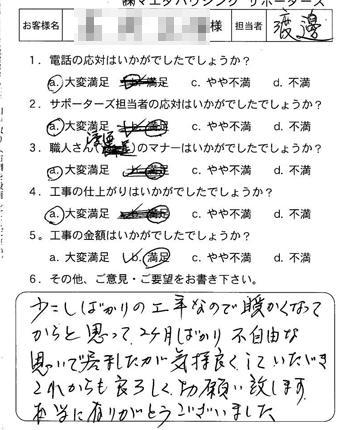 ㈱マエダハウジング サポーターズ
お客様名 様 担当者 渡邊
1. 電話の応対はいかがでしたでしょうか?
a. 大変満足 b. 満足 c. やや不満 d. 不満
2. サポーターズ担当者の応対はいかがでしたでしょうか?
a. 大変満足 b. 満足 c. やや不満 d. 不満
3. 職人さん( )のマナーはいかがでしたでしょうか?
a. 大変満足 b. 満足 c. やや不満 d. 不満
4. 工事の仕上がりはいかがでしたでしょうか?
a. 大変満足 b. 満足 c. やや不満 d. 不満
5. 工事の金額はいかがでしたでしょうか?
a. 大変満足 b. 満足 c. やや不満 d. 不満
6. その他、ご意見・ご要望をお書き下さい。
少こしばかりの工事なので暖かくなって
からと思って、2ケ月ばかり不自由な
思いで居ましたが気持良くしていただき
これからも良ろしくお願い致します
本当にありがとうございました